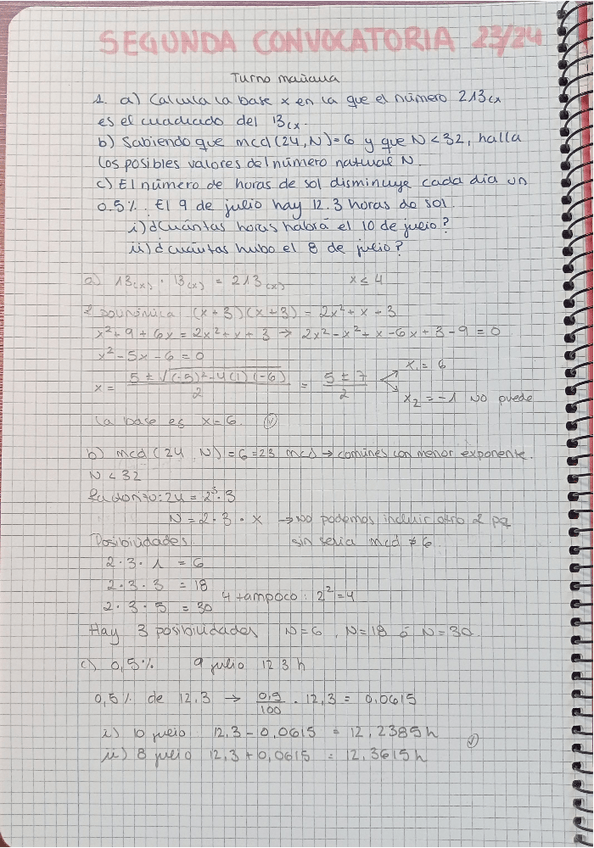 SEGUNDA CONVOCATORIA 23/24
Turno mañana
1. a) Calcula la base x en la que el número 213(x
es el cuadrado del 13(x.
b) Sabiendo que mcd(24,N)=6 y que N<32, halla
los posibles valores del número natural N.
c) El número de horas de sol disminuye cada día un
0.5%. El 9 de julio hay 12.3 horas de sol.
i) ¿Cuántas horas habrá el 10 de julio?
ii) ¿cuántas hubo el 8 de julio?
a) 13(x) · 13(x) = 213(x) x ≤ 4
polinómica: (x+3)(x+3) = 2x²+x+3
x²+9+6x = 2x²+x+3 → 2x²-x²+x-6x+3-9=0
x²-5x-6=0
x = 5±√(-5)²-4(1)(-6) / 2 = 5±7 / 2 x1=6
x2=-1 No puede
La base es x=6.
b) mcd(24,N)=6=2·3 mcd → comunes con menor exponente.
N<32
factorizo: 24=2³·3
N=2·3·x → No podemos incluir otro 2 pq
Posibilidades: sin sería mcd ≠ 6
2·3·1 = 6
2·3·3 = 18
4 tampoco: 2²=4
2·3·5 = 30
Hay 3 posibilidades N=6, N=18 ó N=30.
c) 0,5% 9 julio 12.3 h
0,5% de 12,3 → 0,5/100 · 12,3 = 0,0615
i) 10 julio 12,3-0,0615 = 12,2385h
ii) 8 julio 12,3+0,0615 = 12,3615h